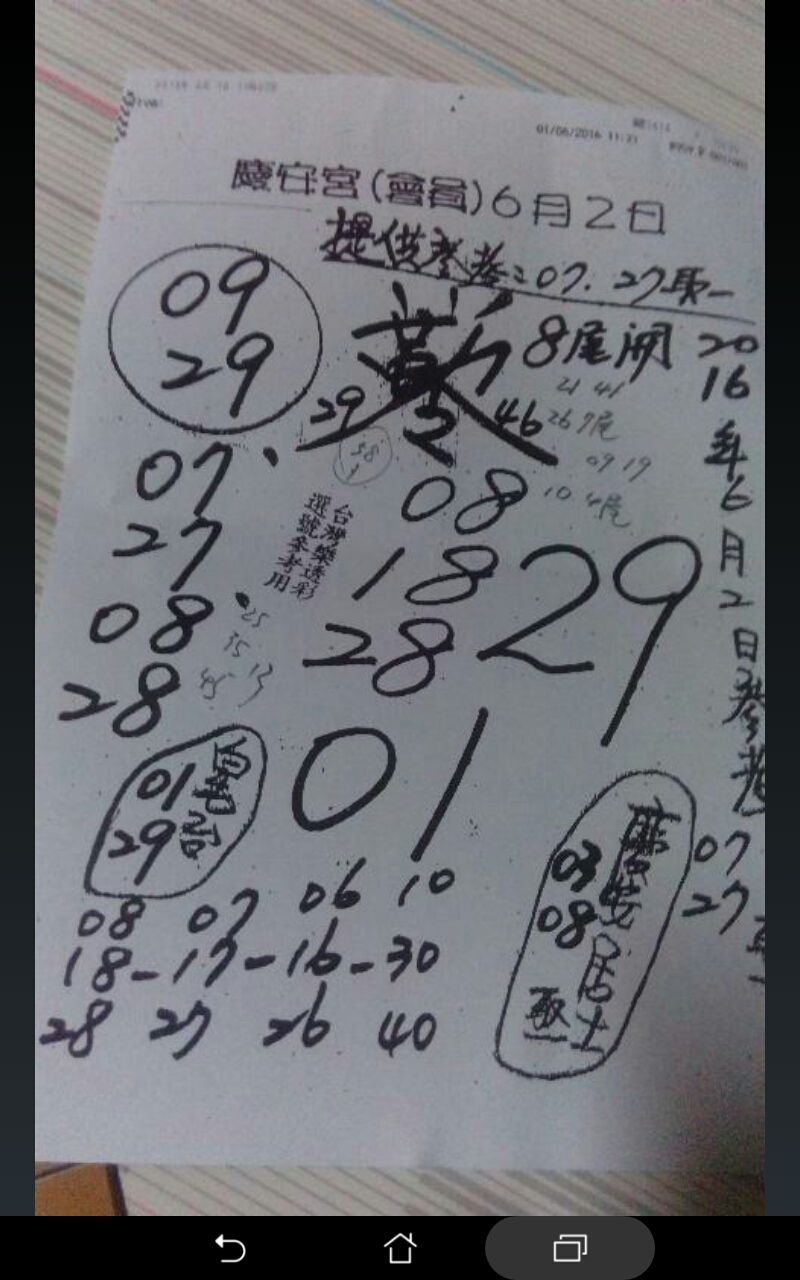 01/06/2016 11:31
慶安宮(會員)6月2日
提供參考:07.27取一
09
29
8尾開
21 41
29
46
26 7尾
38
09 19
10 4尾
07
27
08
28
台灣樂透彩
選號參考用
08
18
28
29
25
35 13
45
01
2016年6月2日參考
07
27
01
29
08 07 06 10
18-17-16-30
28 27 26 40
03
08
居士
取一